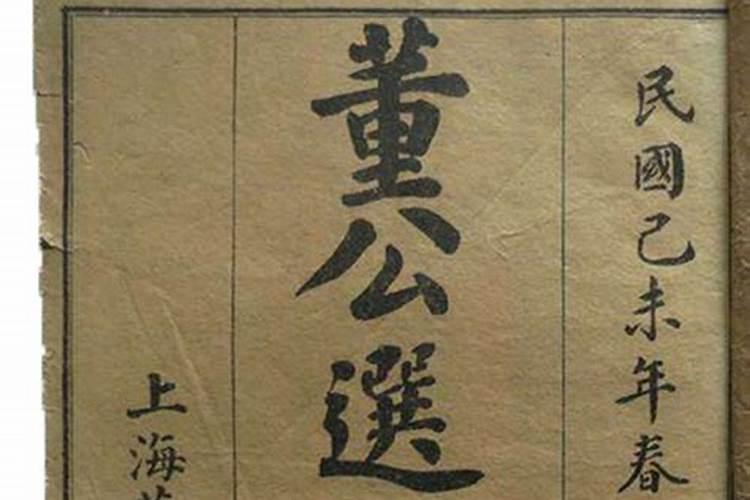 民國己未年春
董公選
上海